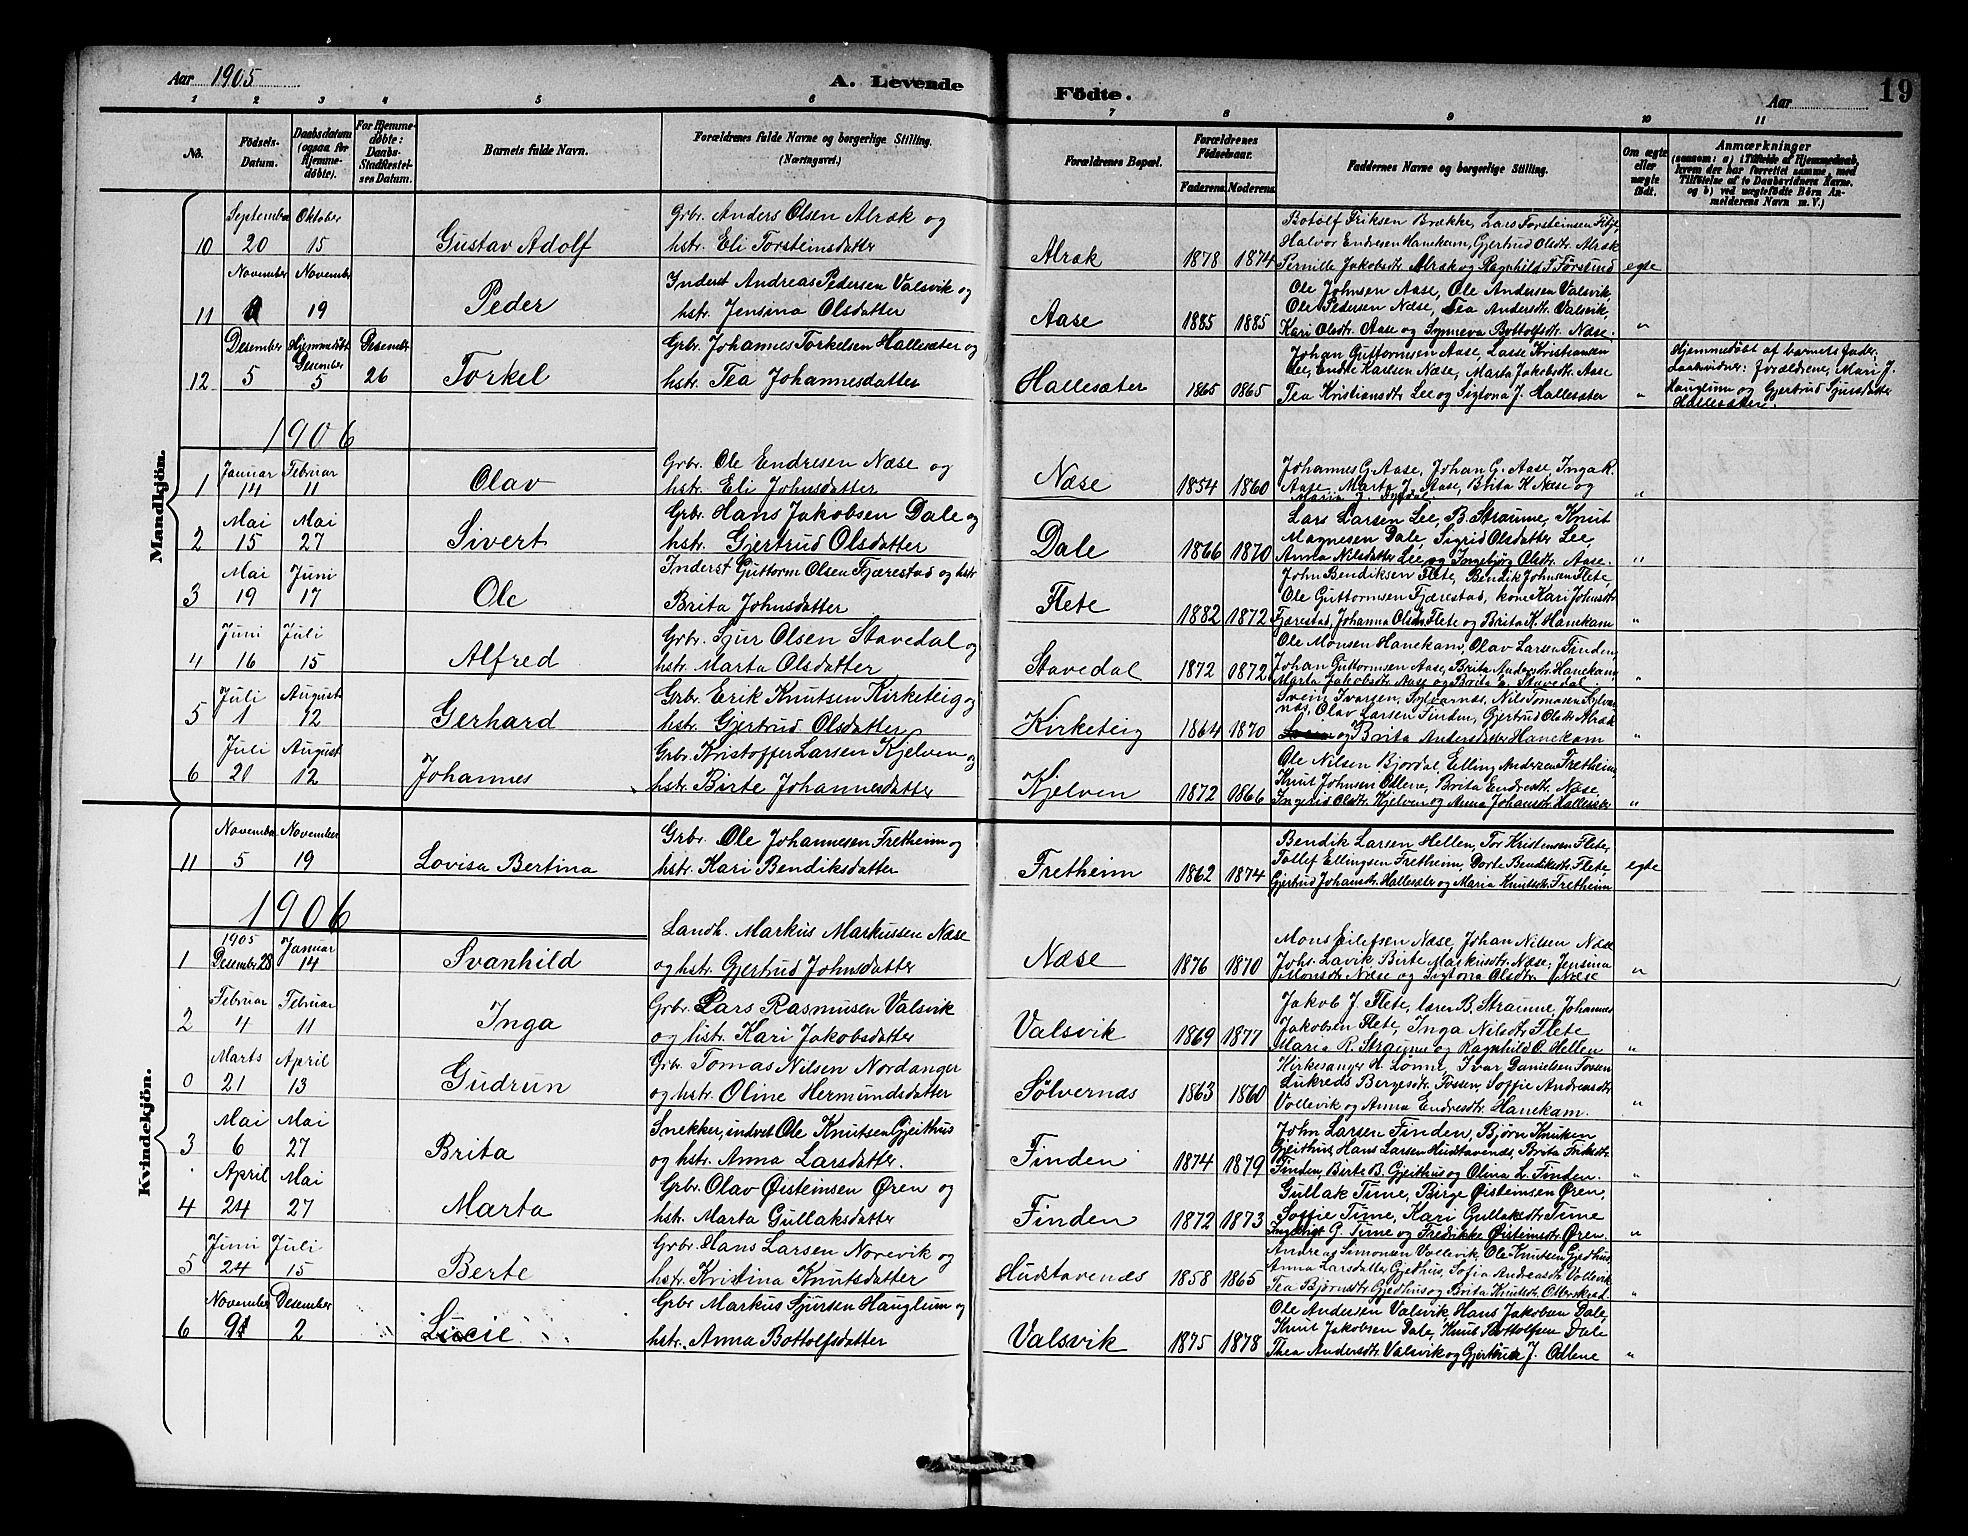 Aar 1905 A. Levende Födte. Aar 19
1 2 3 4 5 6 7 8 9 10 11
No. Födsels-Datum. Daabsdatum (ogsaa for Hjemmedøbte). For Hjemmedøbte: Daabs-Stadfæstelsens Datum. Barnets fulde Navn. Forældrenes fulde Navne og borgerlige Stilling. (Næringsvei.) Forældrenes Bopæl. Forældrenes Födselsaar. Faderens. Moderens. Faddernes Navne og borgerlige Stilling. Om ægte eller uægte födt. Anmærkninger (saasom: a) i Tilfælde af Hjemmedaab, hvem der har forrettet samme, med Tilföielse af to Daabsvidners Navne, og b) ved uægtefödte Börn Anmelderens Navn m. V.)
Mandkjön.
September Oktober Grbr. Anders Olsen Alræk og Botolf Eriksen Brække, Lars Torsteinsen
10 20 15 Gustav Adolf hstr. Eli Torsteinsdatter Alræk 1878 1874 Halvor Endresen Hanekam, Gjertrud Olsdtr. Alræk
Pernille Jakobsdtr. Alræk og Ragnhild T. Forsund egte
November November Inderst Andreas Pedersen Valsvik og Ole Johnsen Aase, Ole Andersen Valsvik,
11 19 Peder hstr. Jensina Olsdatter Aase 1885 1885 Ole Pedersen Næse, Tea Andersdtr. Valsvik,
Kari Olsdtr. Aase og Synneva Bottolfsdtr. Næse. "
Desember Hjemmedøbt Desember Desember Grbr. Johannes Torkelsen Hallesæter og Johan Guttormsen Aase, Lasse Kristiansen Hjemmedøbt af barnets fader;
12 5 5 26 Torkel hstr. Tea Johannesdatter Hallesæter 1865 1865 Lee, Endre Karlsen Næse, Marta Jakobsdtr. Aase Daabsvidner: forældrene, Mari J.
Tea Kristiansdtr. Lee og Sigtona J. Hallesæter " Hauglum og Gjertrud Sjursdatter
Hallesæter.
1906
Januar Februar Grbr. Ole Endresen Næse og Johannes G. Aase, Johan G. Aase, Inga R.
1 14 11 Olav hstr. Eli Johnsdatter Næse 1854 1860 Aase, Marta J. Aase, Brita K. Næse og
Maria J. "
Mai Mai Grbr. Hans Jakobsen Dale og Lars Larsen Lee, B. Straume, Knut
2 15 27 Sivert hstr. Gjertrud Olsdatter Dale 1866 1870 Magnesen Dale, Sigrid Olsdatter Lee,
Anna Nilsdatter Lee og Ingebjørg Olsdtr. Aase. "
Mai Juni Inderst Guttorm Olsen Fjærestad og hstr John Bendiksen Flete, Bendik Johnsen Flete
3 19 17 Ole Brita Johnsdatter Flete 1882 1872 Ole Guttormsen Fjærestad, kone Kari Johnsdtr
Fjærestad, Johanna Olsen Flete og Brita K. Hanekam "
Juni Juli Grbr. Sjur Olsen Stavedal og Ole Monsen Hanekam, Olav Larsen Finden,
4 16 15 Alfred hstr. Marta Olsdatter Stavedal 1872 1872 Johan Guttormsen Aase, Brita Andersdtr. Hanekam
Marta Jakobsdtr. Aase og Brita Stavedal "
Juli August Grbr. Erik Knutsen Kirketeig og Svein Ivarsen, Sylvarnæs, Nils Tomasen Sylvar
5 1 12 Gerhard hstr. Gjertrud Olsdatter Kirketeig 1864 1870 næs, Olav Larsen Finden, Gjertrud Olsdtr Alræk
og Brita Andersdatter Hanekam "
Juli August Grbr. Kristoffer Larsen Kjelven og Ole Nilsen Bjordal, Elling Andersen Fretheim,
6 20 12 Johannes hstr. Birte Johannesdatter Kjelven 1872 1866 Knut Johnsen Odlene, Brita Endresdtr. Næse,
Ingerid Olsdtr. Kjelven og Anna Johansdtr. Hallesæter "
Kvindekjön.
November November Grbr. Ole Johannesen Fretheim og Bendik Larsen Hellen, Tor Kristensen Flete,
11 5 19 Lovisa Bertina hstr. Kari Bendiksdatter Fretheim 1862 1874 Tollef Ellingsen Fretheim, Dorte Bendiksdtr. Flete egte
Gjertrud Johansdtr. Hallesæter og Maria Knutsdtr. Fretheim
1906
1905 Januar Landh. Markus Markussen Næse Mons Eilefsen Næse, Johan Nilsen Næse
1 Desember 28 14 Svanhild og hstr. Gjertrud Johnsdatter Næse 1876 1870 Johs. Lavik Birte Markusdtr. Næse, Jensina
Monsdtr. Næse og Sigtona Olsdtr. Næse "
Februar Februar Grbr. Lars Rasmusen Valsvik Jakob J. Flete, lærer B. Straume, Johannes
2 4 11 Inga og hstr. Kari Jakobsdatter Valsvik 1869 1877 Jakobsen Flete, Inga Nilsdtr. Flete
Maria R. Straume og Ragnhild O. Hellen "
Marts April Grbr. Tomas Nilsen Nordanger Kirkesanger H. Lønne, Ivar Danielsen Fosen
0 21 13 Gudrun og hstr. Oline Hermundsdatter Sølvernæs 1863 1860 Lukreds Bergesdtr. Fosen, Soffie Andreasdtr
Vollevik og Anna Endresdtr. Hanekam. "
Mai Mai Snekker, inderst Ole Knutsen Gjeithus John Larsen Finden, Bjørn Knutsen
3 6 27 Brita og hstr. Anna Larsdatter. Finden 1874 1879 Gjeithus, Hans Larsen Hudstavenæs, Brita Eriksdtr
Finden, Birte B. Gjeithus og Olina L. Finden. "
April Mai Grbr. Olav Øisteinsen Øren og Gullak Time, Birge Øisteinsen Øren,
4 24 27 Marta hstr. Marta Gullaksdatter Finden 1872 1873 Soffie Time, Kari Gullaksdtr Time
G. Time og Fredrikke Øisteinsdtr. Øren. "
Juni Juli Grbr. Hans Larsen Norevik og Andreas Simonsen Vollevik, Ole Knutsen Gjedhus,
5 24 15 Berte hstr. Kristina Knutsdatter Hudstavenæs 1858 1865 Anna Larsdatter Gjedhus, Sofia Andreasdtr Vollevik
Tea Bjørnsdtr. Gjedhus og Brita Knutsdtr. Otterskred "
November Desember Grbr Markus Sjursen Hauglum og Ole Andersen Valsvik, Hans Jakobsen Dale,
6 2 Lucie hstr. Anna Bottolfsdatter Valsvik 1875 1878 Knut Jakobsen Dale, Knut Bottolfsen Dale
Thea Andersdtr. Valsvik og Gjertrud J. Odlene "